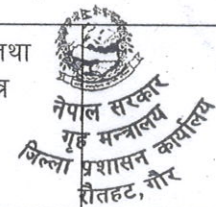 तथा
त्र
नेपाल सरकार
गृह मन्त्रालय
जिल्ला प्रशासन कार्यालय
रौतहट, गौर